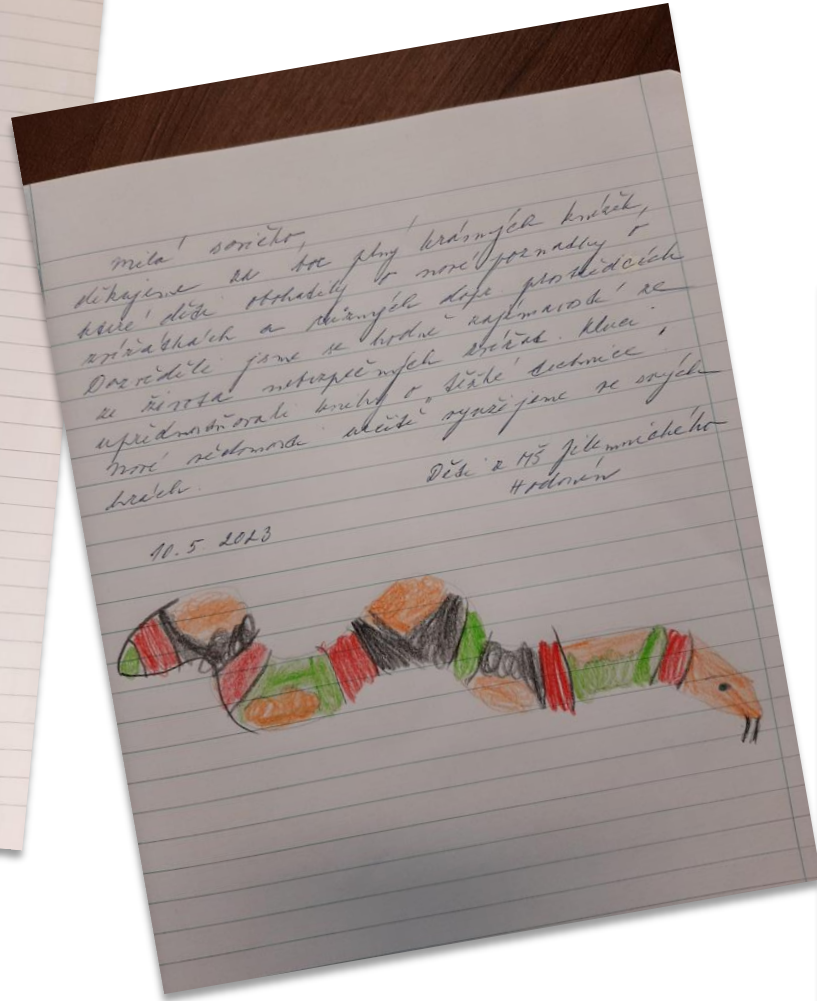 Milá sovičko,
děkujeme za box plný krásných knížek,
které děti obohatily o nové poznatky o
zvířátkách a různých dopr. prostředcích
Dozvěděli jsme se hodně zajímavostí ze
ze života nebezpečných zvířat. Kluci
upřednostňovali knihy o těžké technice,
nové vědomosti určitě využijeme ve svých
hrách.
Děti z MŠ Jilemnického
Hodonín
10. 5. 2023